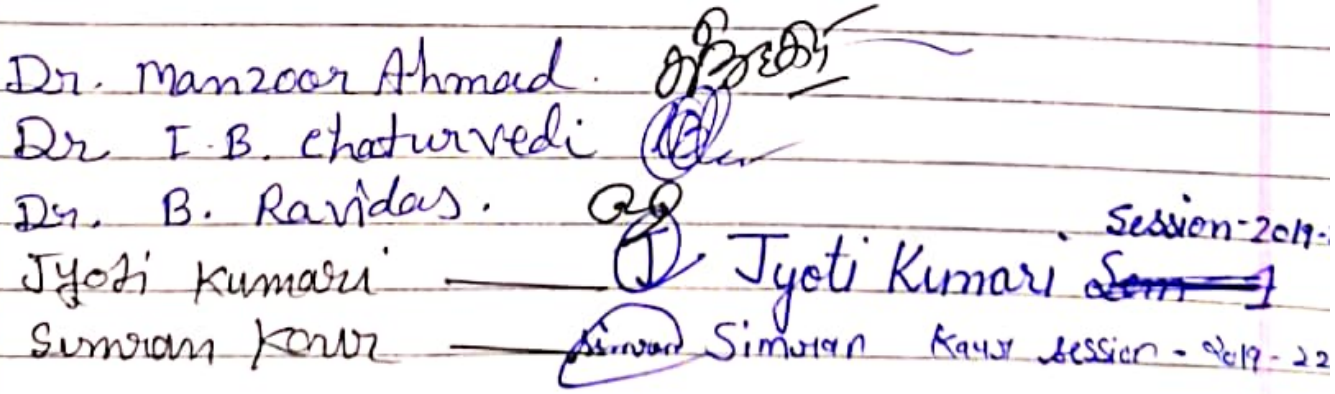 Dr. Manzoor Ahmad.
Dr I.B. Chaturvedi
Dr. B. Ravidas.
Session-2019-
Jyoti Kumari — J Jyoti Kumari
Simran Kour — Simran Simran Kaur session - 2019-22